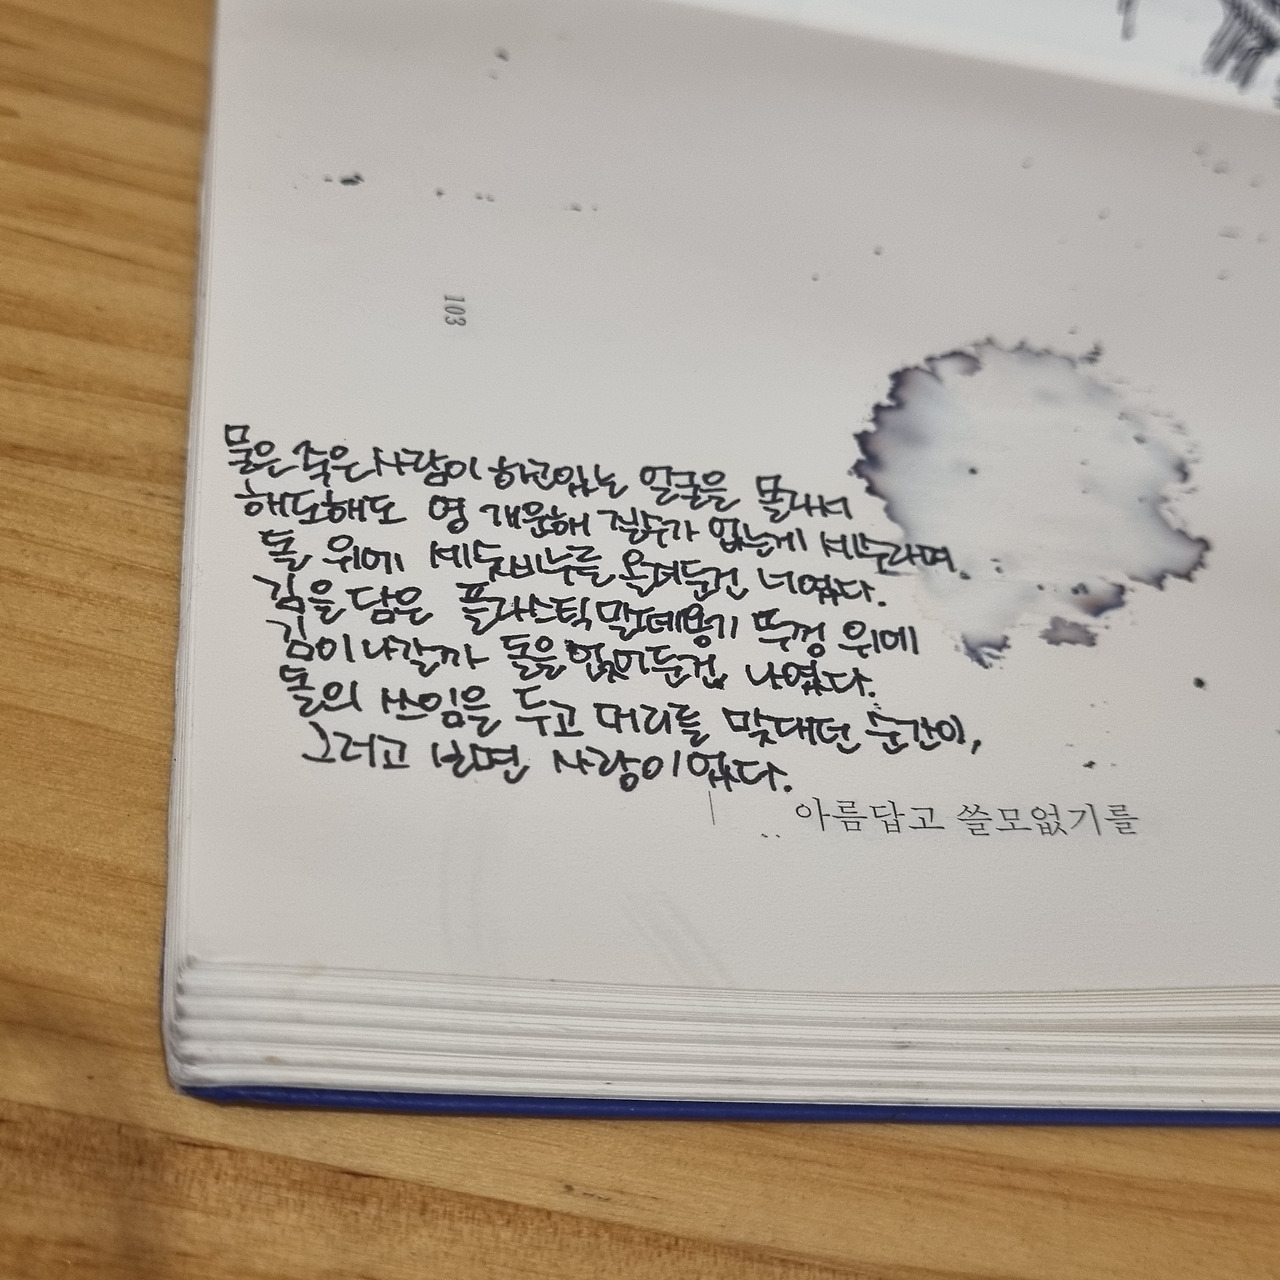 103
물은 죽은 사람이 하고있는 얼굴을 몰라서
해도해도 영 개운해 질수가 없는게 세수라며,
돌 위에 세숫비누를 올려둔건 너였다.
김을 담은 플라스틱 밀폐용기 뚜껑 위에
김이 나갈까 돌을 얹어둔건 나였다.
돌의 쓰임을 두고 머리를 맞대던 순간이,
그러고 보면 사랑이었다.
아름답고 쓸모없기를